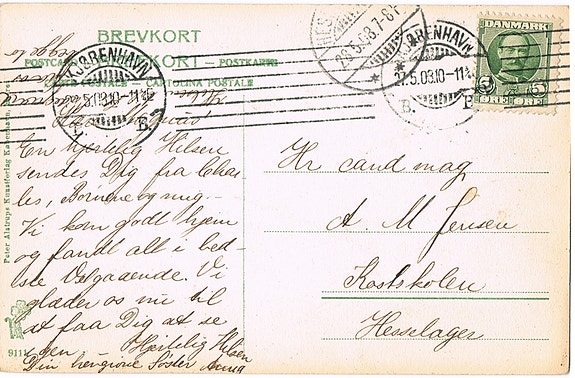 BREVKORT
POSTCARD - BREFKORT - POSTKARTE
CARTE POSTALE - CARTOLINA POSTALE
KJØBENHAVN
27.5.08.10-11
B.
28.5.08.7-8F
KJØBENHAVN
27.5.08.10-11
B.
DANMARK
5 5
ØRE ØRE
Peter Alstrups Kunstforlag Kjøbenhavn
9111
En hjertelig Hilsen
sendes Dig fra Char
les, Børnene og mig
Vi kom godt hjem
og fandt alt i bed-
ste Velgaaende. Vi
glæder os nu til
at faa Dig at se
igen. Hjertelig Hilsen
Din hengivne Søster Anna
Hr cand mag
A. M Jensen
Kostskolen
Hesselager